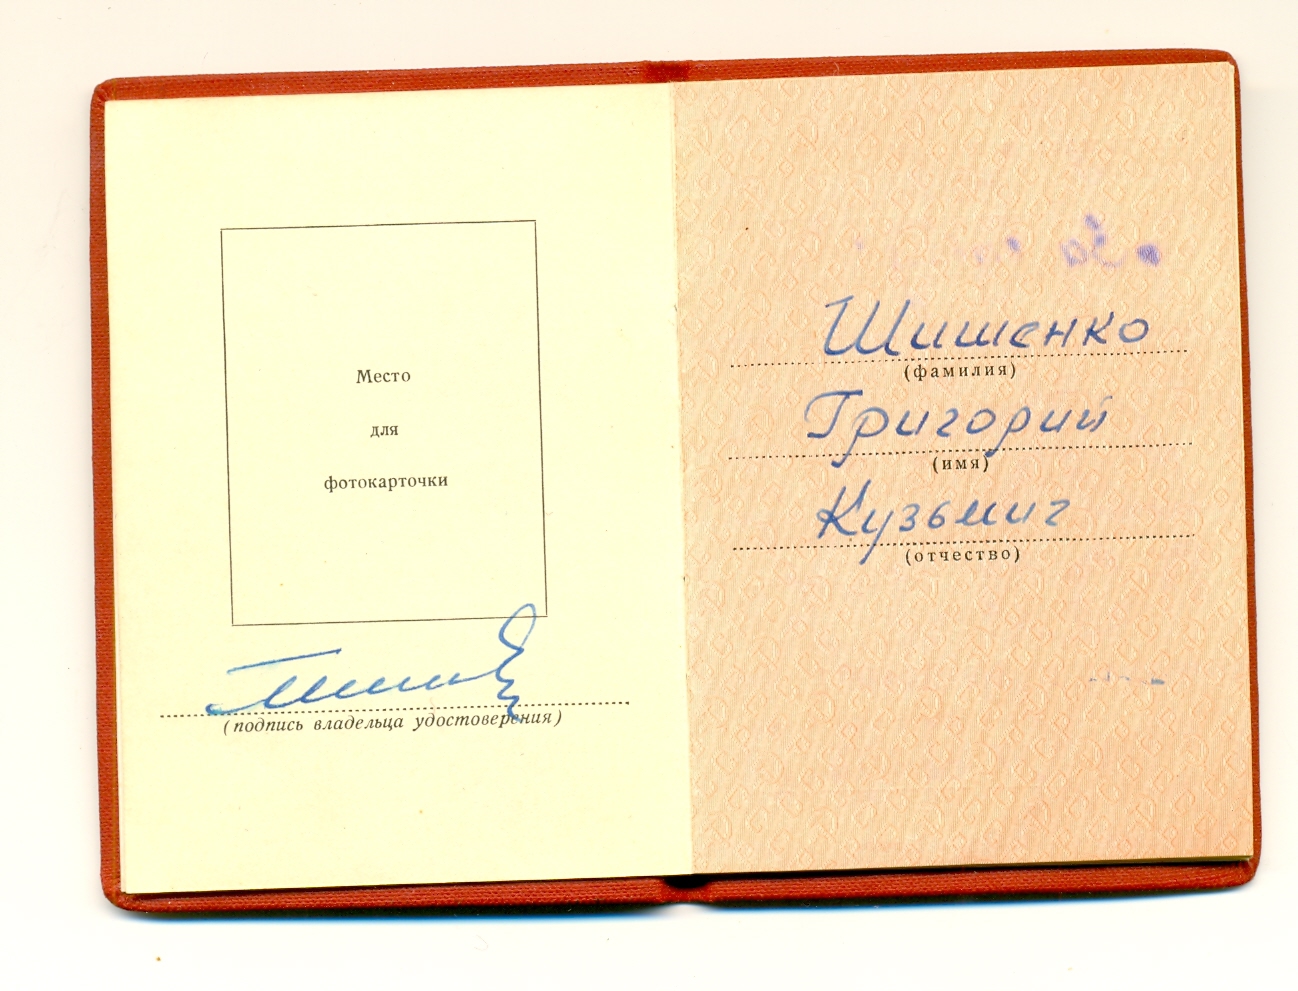 Место
для
фотокарточки
(подпись владельца удостоверения)
Шишенко
(фамилия)
Григорий
(имя)
Кузьмич
(отчество)